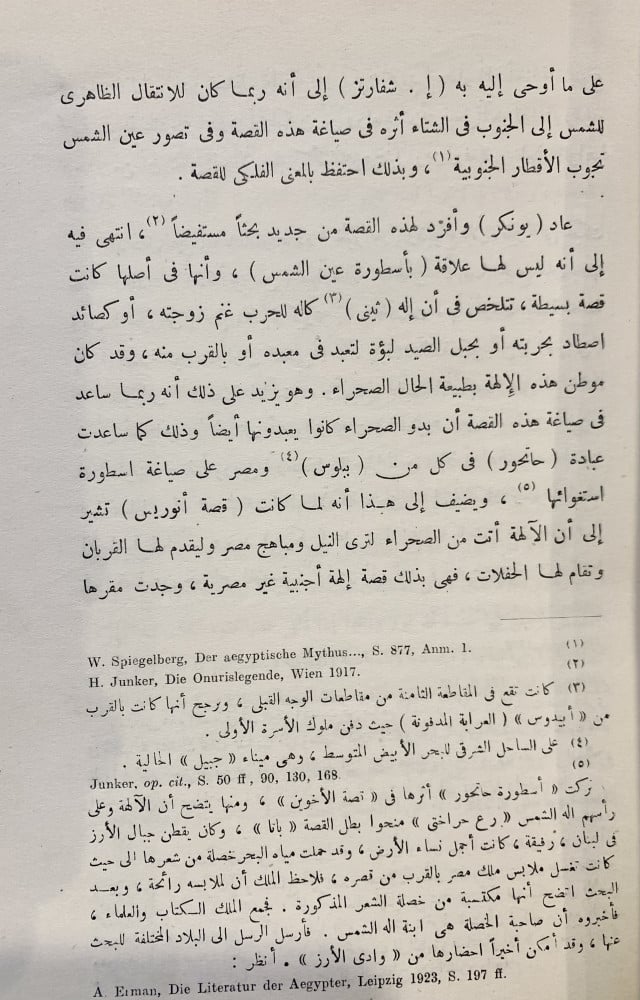 على ما أوحى إليه به ( إ . شفارتز ) إلى أنه ربما كان للانتقال الظاهرى
للشمس إلى الجنوب فى الشتاء أثره فى صياغة هذه القصة وفى تصور عين الشمس
تجوب الأقطار الجنوبية (١) ، وبذلك احتفظ بالمعنى الفلكى للقصة .
عاد ( يونكر ) وأفرد لهذه القصة من جديد بحثاً مستفيضاً (٢) ، انتهى فيه
إلى أنه ليس لها علاقة ( بأسطورة عين الشمس ) ، وأنها فى أصلها كانت
قصة بسيطة ، تتلخص فى أن إله ( ثينى ) (٣) كاله للحرب غنم زوجته ، أو كصائد
اصطاد بحربته أو بحبل الصيد لبؤة لتعبد فى معبده أو بالقرب منه ، وقد كان
موطن هذه الإلهة بطبيعة الحال الصحراء . وهو يزيد على ذلك أنه ربما ساعد
فى صياغة هذه القصة أن بدو الصحراء كانوا يعبدونها أيضاً وذلك كما ساعدت
عبادة ( حاتحور ) فى كل من ( ببلوس ) (٤) ومصر على صياغة اسطورة
استغوائها (٥) ، ويضيف إلى هذا أنه لما كانت ( قصة أنوريس ) تشير
إلى أن الآلهة أتت من الصحراء لترى النيل ومباهج مصر وليقدم لها القربان
وتقام لها الحفلات ، فهى بذلك قصة إلهة أجنبية غير مصرية ، وجدت مقرها
(١) W. Spiegelberg, Der aegyptische Mythus..., S. 877, Anm. 1.
(٢) H. Junker, Die Onurislegende, Wien 1917.
(٣) كانت تقع فى المقاطعة الثامنة من مقاطعات الوجه القبلى ، ويرجح أنها كانت بالقرب
من « أبيدوس » ( العرابة المدفونة ) حيث دفن ملوك الأسرة الأولى .
(٤) على الساحل الشرقى للبحر الأبيض المتوسط ، وهى ميناء « جبيل » الحالية .
(٥) Junker, op. cit., S. 50 ff, 90, 130, 168.
تركت « أسطورة حاتحور » أثرها فى « قصة الأخوين » ، ومنها يتضح أن الآلهة وعلى
رأسهم اله الشمس « رع حراختى » منحوا بطل القصة « باتا » ، وكان يقطن جبال الأرز
فى لبنان ، رفيقة ، كانت أجمل نساء الأرض ، وقد حملت مياه البحر خصلة من شعرها الى حيث
كانت تغسل ملابس ملك مصر بالقرب من قصره ، فلاحظ الملك أن لملابسه رائحة ، وبعد
البحث اتضح أنها مكتسبة من خصلة الشعر المذكورة . فجمع الملك الكتاب والعلماء ،
فأخبروه أن صاحبة الخصلة هى ابنة اله الشمس . فأرسل الرسل الى البلاد المختلفة للبحث
عنها ، وقد أمكن أخيراً احضارها من « وادى الأرز » . أنظر :
A. Erman, Die Literatur der Aegypter, Leipzig 1923, S. 197 ff.